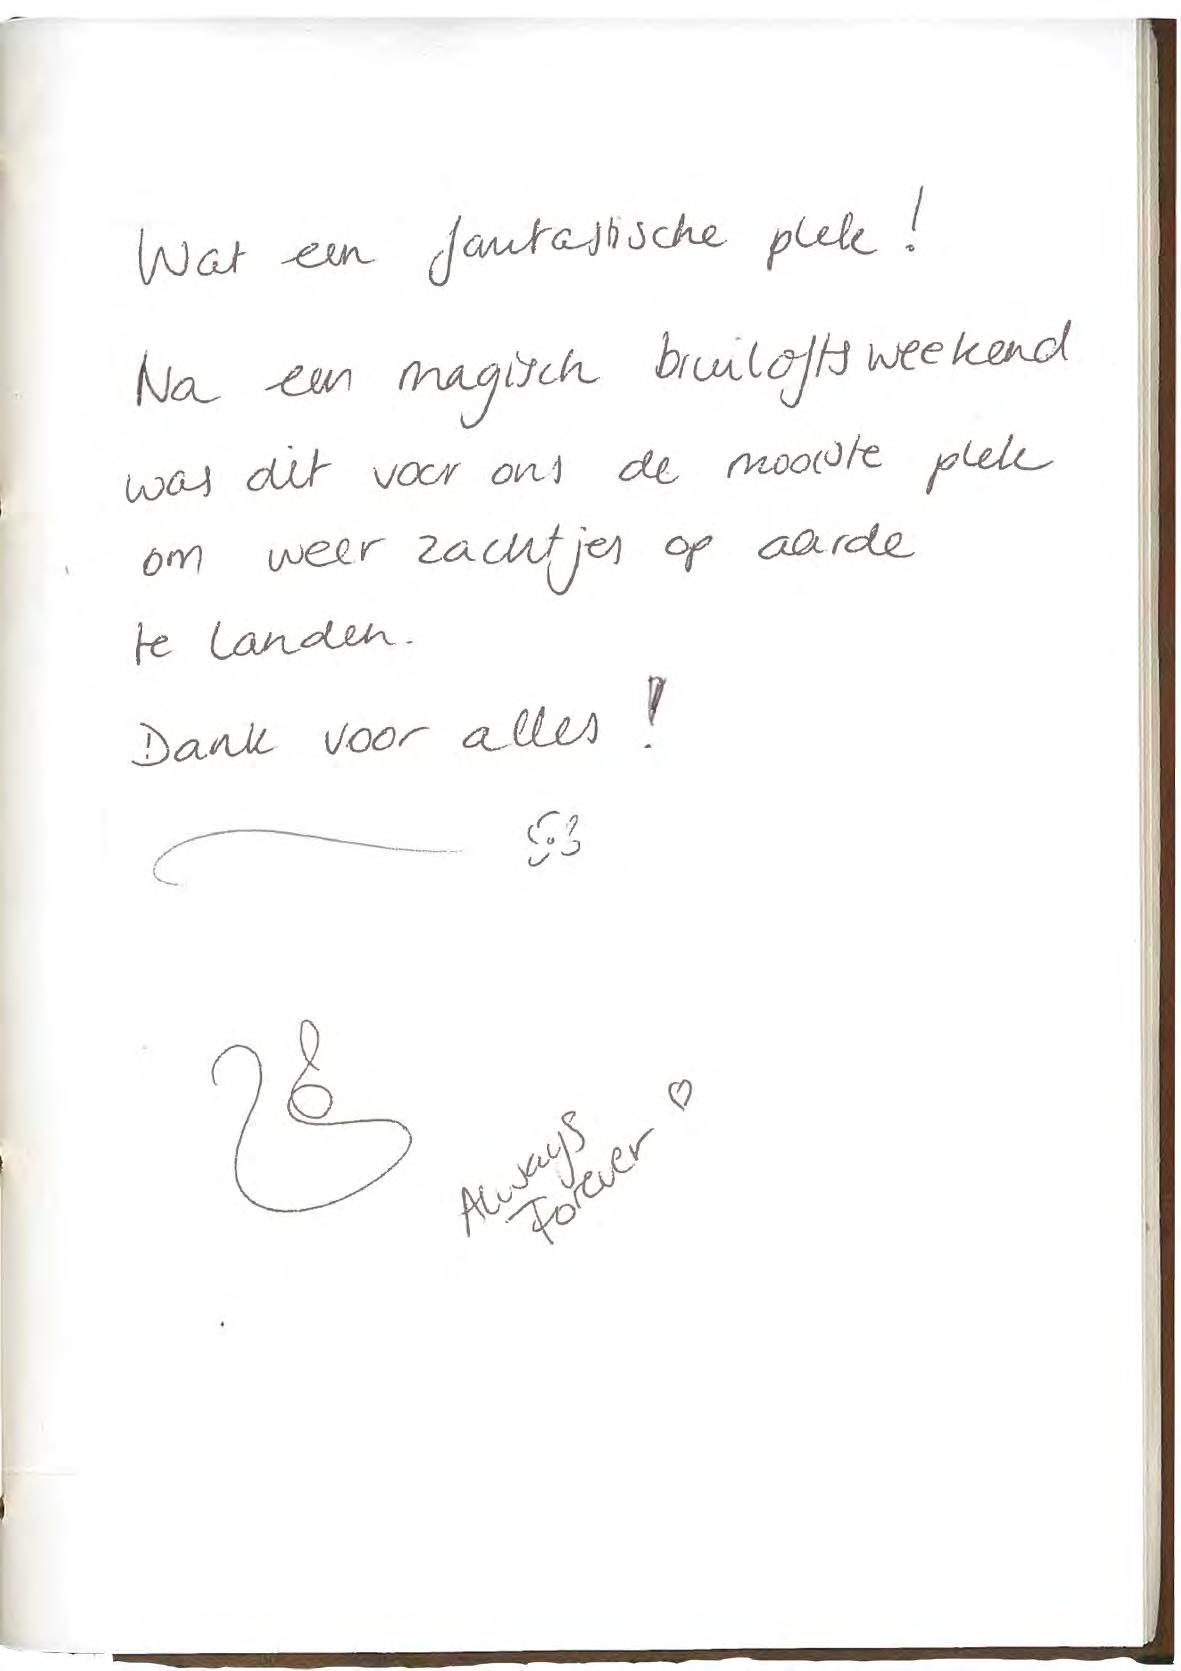 Wat een fantastische plek!
Na een magisch bruiloftsweekend
was dit voor ons de mooiste plek
om weer zachtjes op aarde
te landen.
Dank voor alles!
Always
Forever ♡